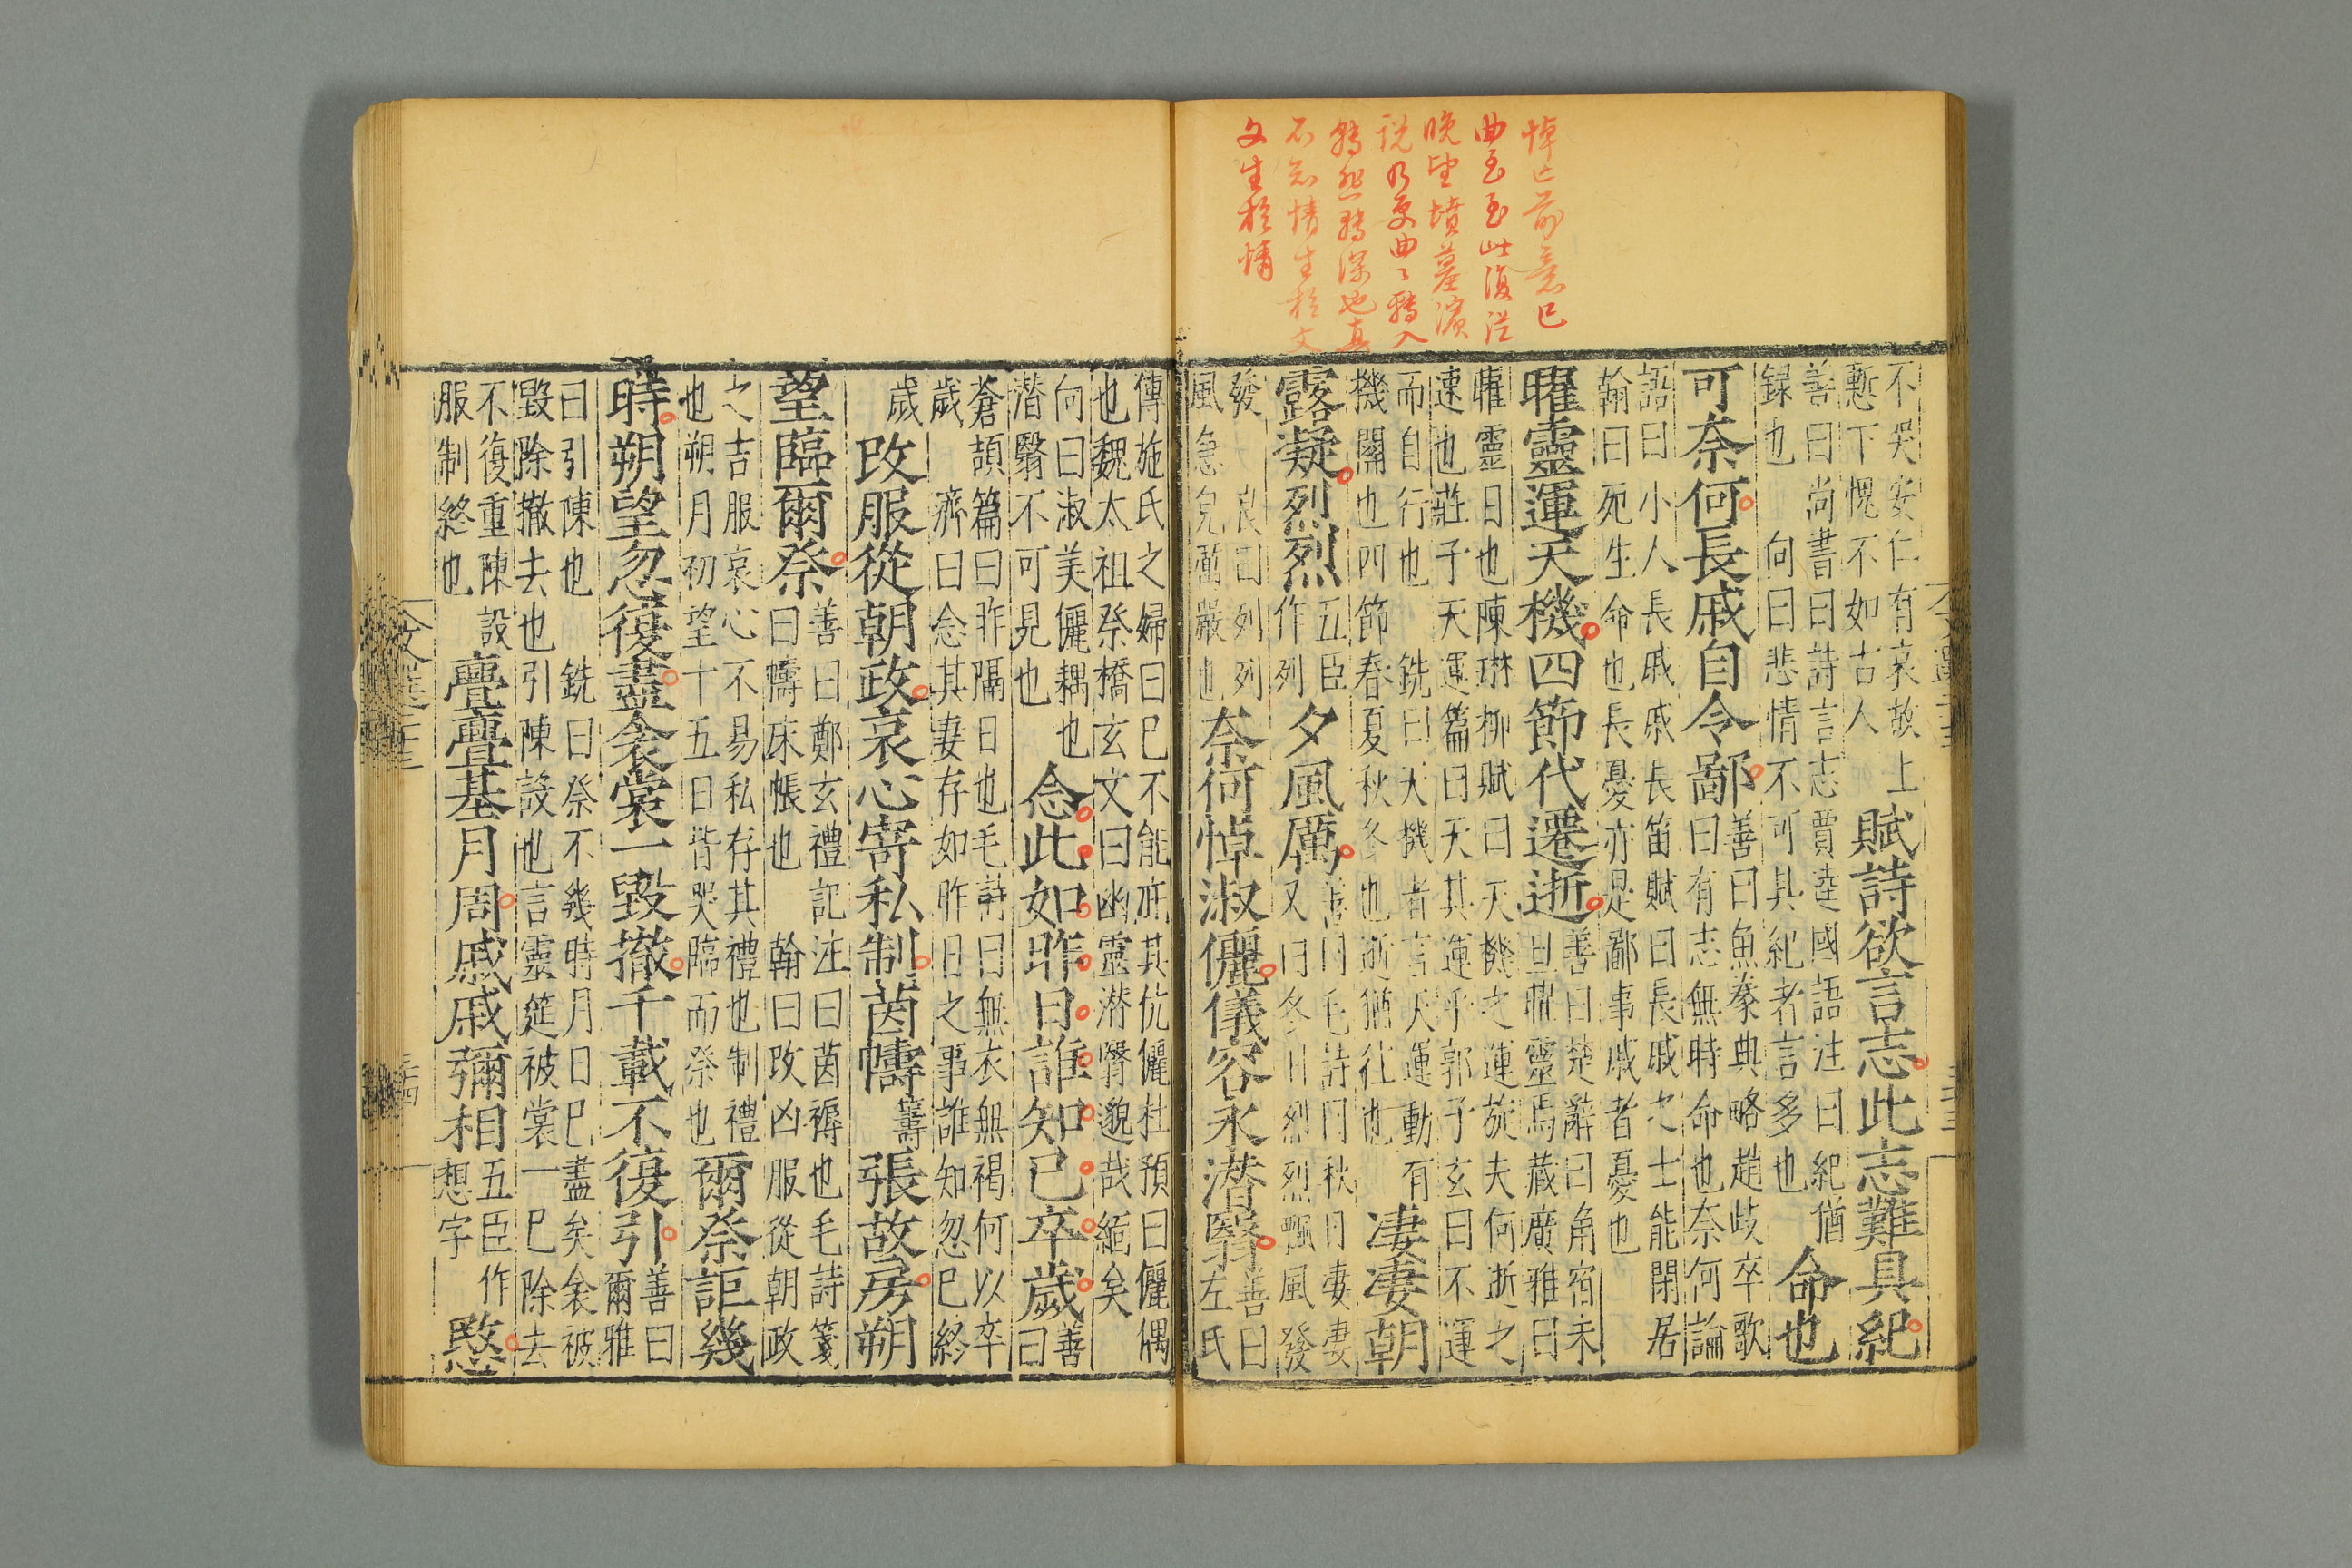 悼亡前意已
曲至至此復從
晚望墳墓濱
說乃更曲〻轉入
轉悲轉深也真
不知情生於文
文生於情
不哭安仁有哀故上
慙下愧不如古人
賦詩欲言志此志難具紀
善曰尚書曰詩言志賈逵國語注曰紀猶
録也 向曰悲情不可具紀者言多也
命也
可奈何長戚自令鄙
善曰魚豢典略趙歧卒歌
曰有志無時命也奈何論
語曰小人長戚戚長笛賦曰長戚之士能閑居
翰曰死生命也長長憂亦是鄙事戚者憂也
曜靈運天機四節代遷逝
善曰楚辭曰角宿未
旦曜靈焉藏廣雅曰
曜靈日也陳琳柳賦曰天機之運旋夫何逝之
速也莊子天運篇曰天其運乎郭子玄曰不運
而自行也 銑曰天機者言天運動有
機關也四節春夏秋冬也逝猶往也
凄凄朝
露凝烈烈
五臣
作列
夕風厲
善曰毛詩曰秋日凄凄
又曰冬日烈烈飄風發
發 良曰列列
風急皃厲嚴也
奈何悼淑儷儀容永潛翳
善曰
左氏
傳施氏之婦曰已不能庇其伉儷杜預曰儷偶
也魏太祖祭橋玄文曰幽靈潛翳邈哉緬矣
向曰淑美儷耦也
潛翳不可見也
念此如昨日誰知已卒歲
善
曰
蒼頡篇曰昨隔日也毛詩曰無衣無褐何以卒
歲 濟曰念其妻存如昨日之事誰知忽已終
歲
改服從朝政哀心寄私制茵幬
籌
張故房朔
望臨爾祭
善曰鄭玄禮記注曰茵褥也毛詩箋
曰幬床帳也 翰曰改凶服從朝政
之吉服哀心不易私存其禮也制禮
也朔月初望十五日皆哭臨而祭也
爾祭詎幾
時朔望忽復盡衾裳一毀撤千載不復引
善曰
爾雅
曰引陳也 銑曰祭不幾時月日已盡矣衾被
毀除撤去也引陳設也言靈筵被裳一已除去
不復重陳設
服制終也
亹亹朞月周戚戚彌相
五臣作
想字
愍
文選二十三
三十三
三十四